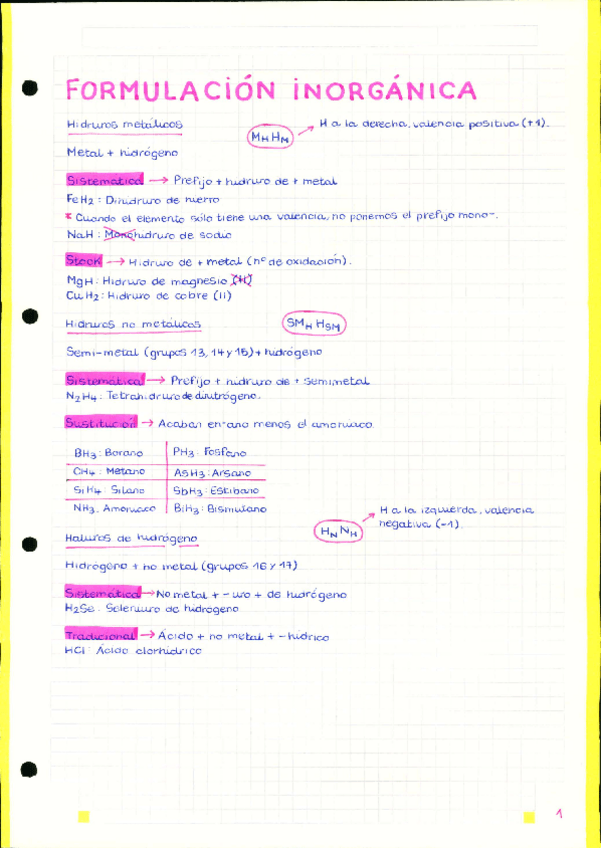 FORMULACIÓN INORGÁNICA
Hidruros metálicos
MH HM
H a la derecha, valencia positiva (+1).
Metal + hidrógeno
Sistemática → Prefijo + hidruro de + metal
FeH2 : Dihidruro de hierro
* Cuando el elemento sólo tiene una valencia, no ponemos el prefijo mono-.
NaH : Monohidruro de sodio
Stock → Hidruro de + metal (nº de oxidación).
MgH : Hidruro de magnesio (II)
CuH2 : Hidruro de cobre (II)
Hidruros no metálicos
SMH HSM
Semi-metal (grupos 13, 14 y 15) + hidrógeno
Sistemática → Prefijo + hidruro de + semimetal
N2H4 : Tetrahidruro de dinitrógeno.
Sustitución → Acaban en -ano menos el amoniaco.
BH3 : Borano PH3 : Fosfano
CH4 : Metano AsH3 : Arsano
SiH4 : Silano SbH3 : Estibano
NH3 : Amoniaco BiH3 : Bismutano
H a la izquierda, valencia
negativa (-1).
HN NH
Haluros de hidrógeno
Hidrógeno + no metal (grupos 16 y 17)
Sistemática → No metal + -uro + de hidrógeno
H2Se : Seleniuro de hidrógeno
Tradicional → Ácido + no metal + -hídrico
HCl : Ácido clorhídrico
1